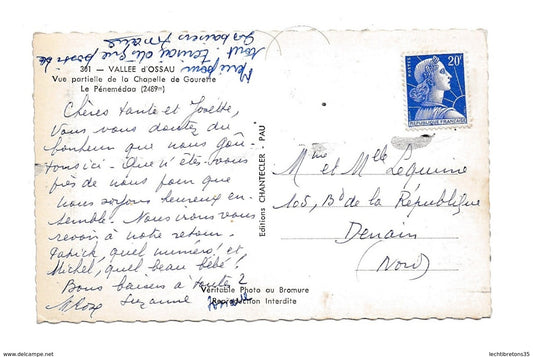 381 - VALLEE d'OSSAU
Vue partielle de la Chapelle de Gourette
Le Pénemédaa (2489m)
Chères tante et Josette,
Vous vous doutez du
bonheur que nous goû-
tons ici - Que n'êtes-vous
près de nous pour que
nous soyons heureux en-
semble. Nous irons vous
revoir à notre retour.
Patrick, quel numéro ! et
Michel, quel beau bébé !
Bons baisers à toutes 2
Suzanne
Editions CHANTECLER - PAU
POSTES
20F
REPUBLIQUE FRANÇAISE
Mme et Mlle Lequime
105, Bd de la République
Denain
(Nord)
Véritable Photo au Bromure
Reproduction Interdite
www.delcampe.net
lechtibretons35